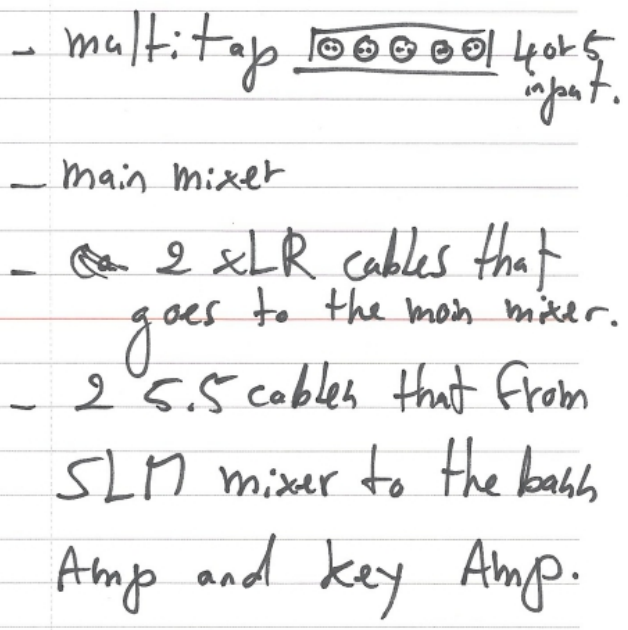 - multitap 4 or 5
input.
- main mixer
- 2 XLR cables that
goes to the main mixer.
- 2 5.5 cables that from
SLM mixer to the bass
Amp and key Amp.